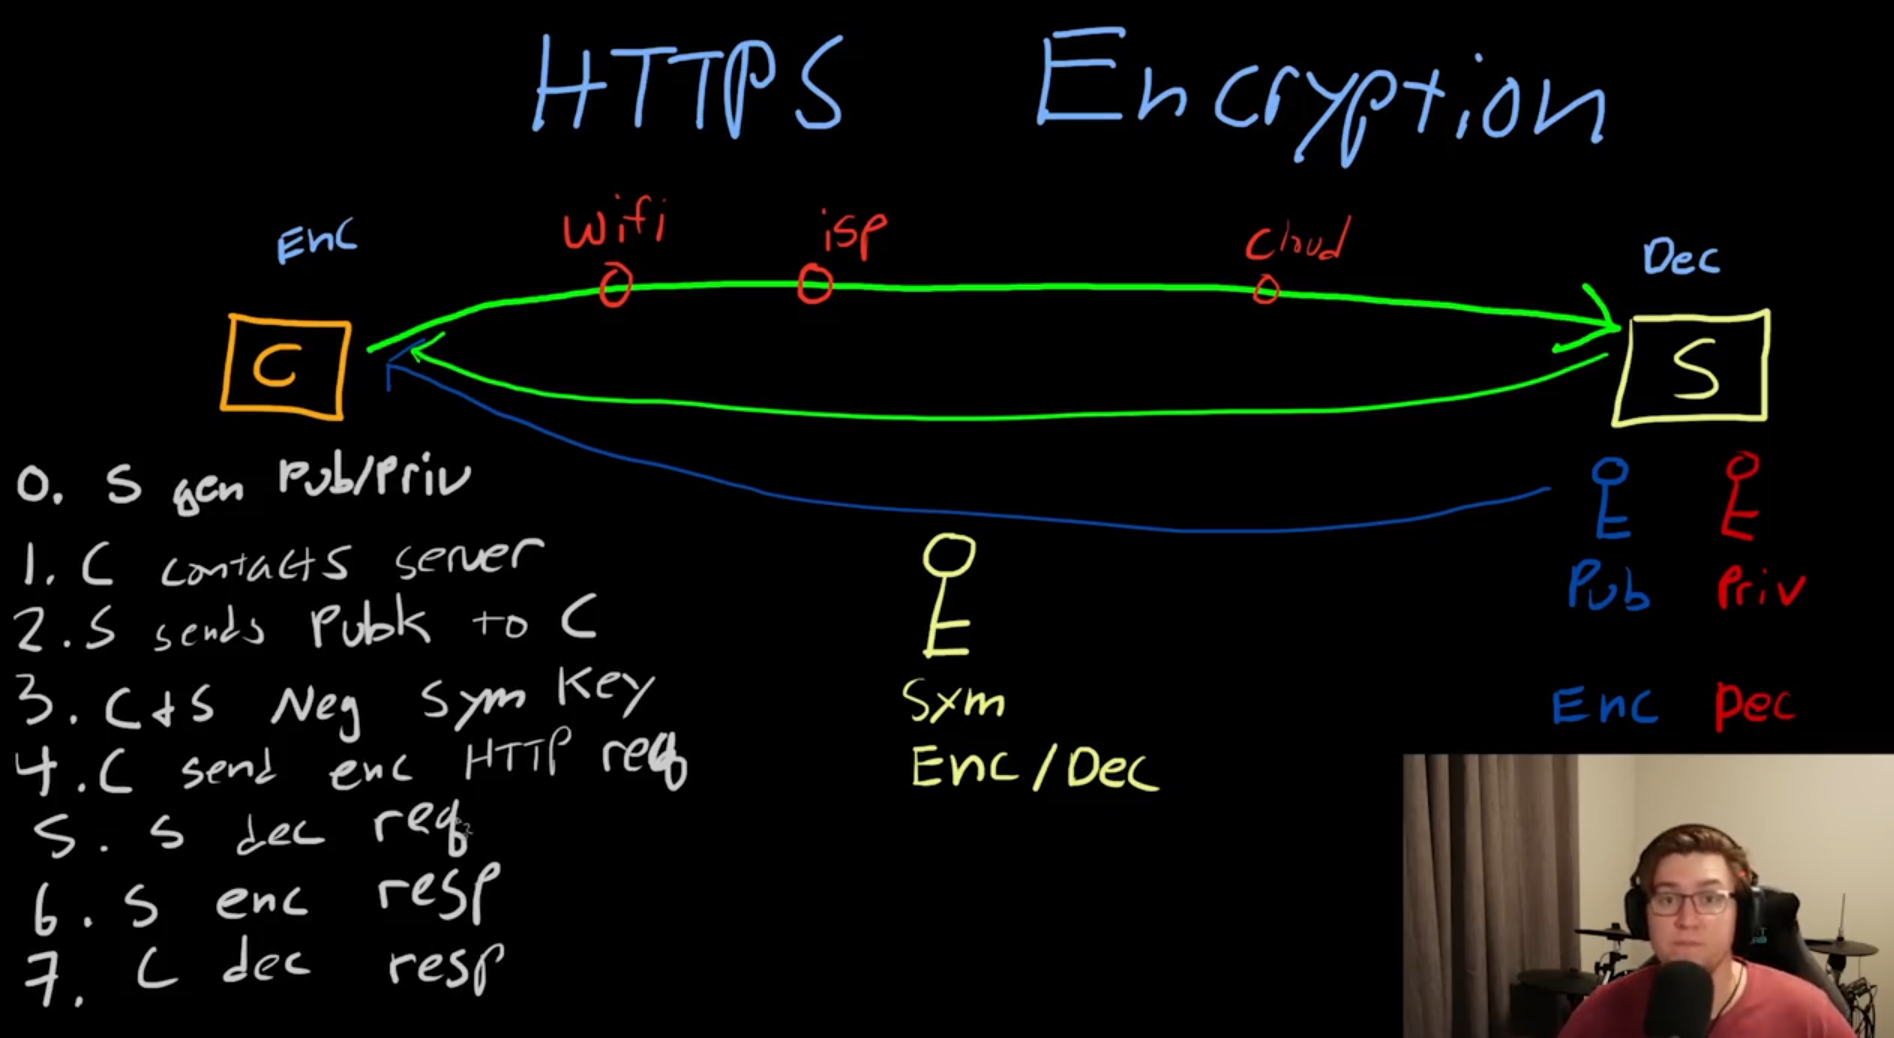 HTTPS Encryption
Enc
wifi
isp
Cloud
Dec
C
S
0. S gen Pub/Priv
1. C contacts server
2. S sends Pubk to C
3. C+S Neg Sym Key
4. C send enc HTTP req
5. S dec req
6. S enc resp
7. C dec resp
Sym
Enc/Dec
Pub Priv
Enc Dec